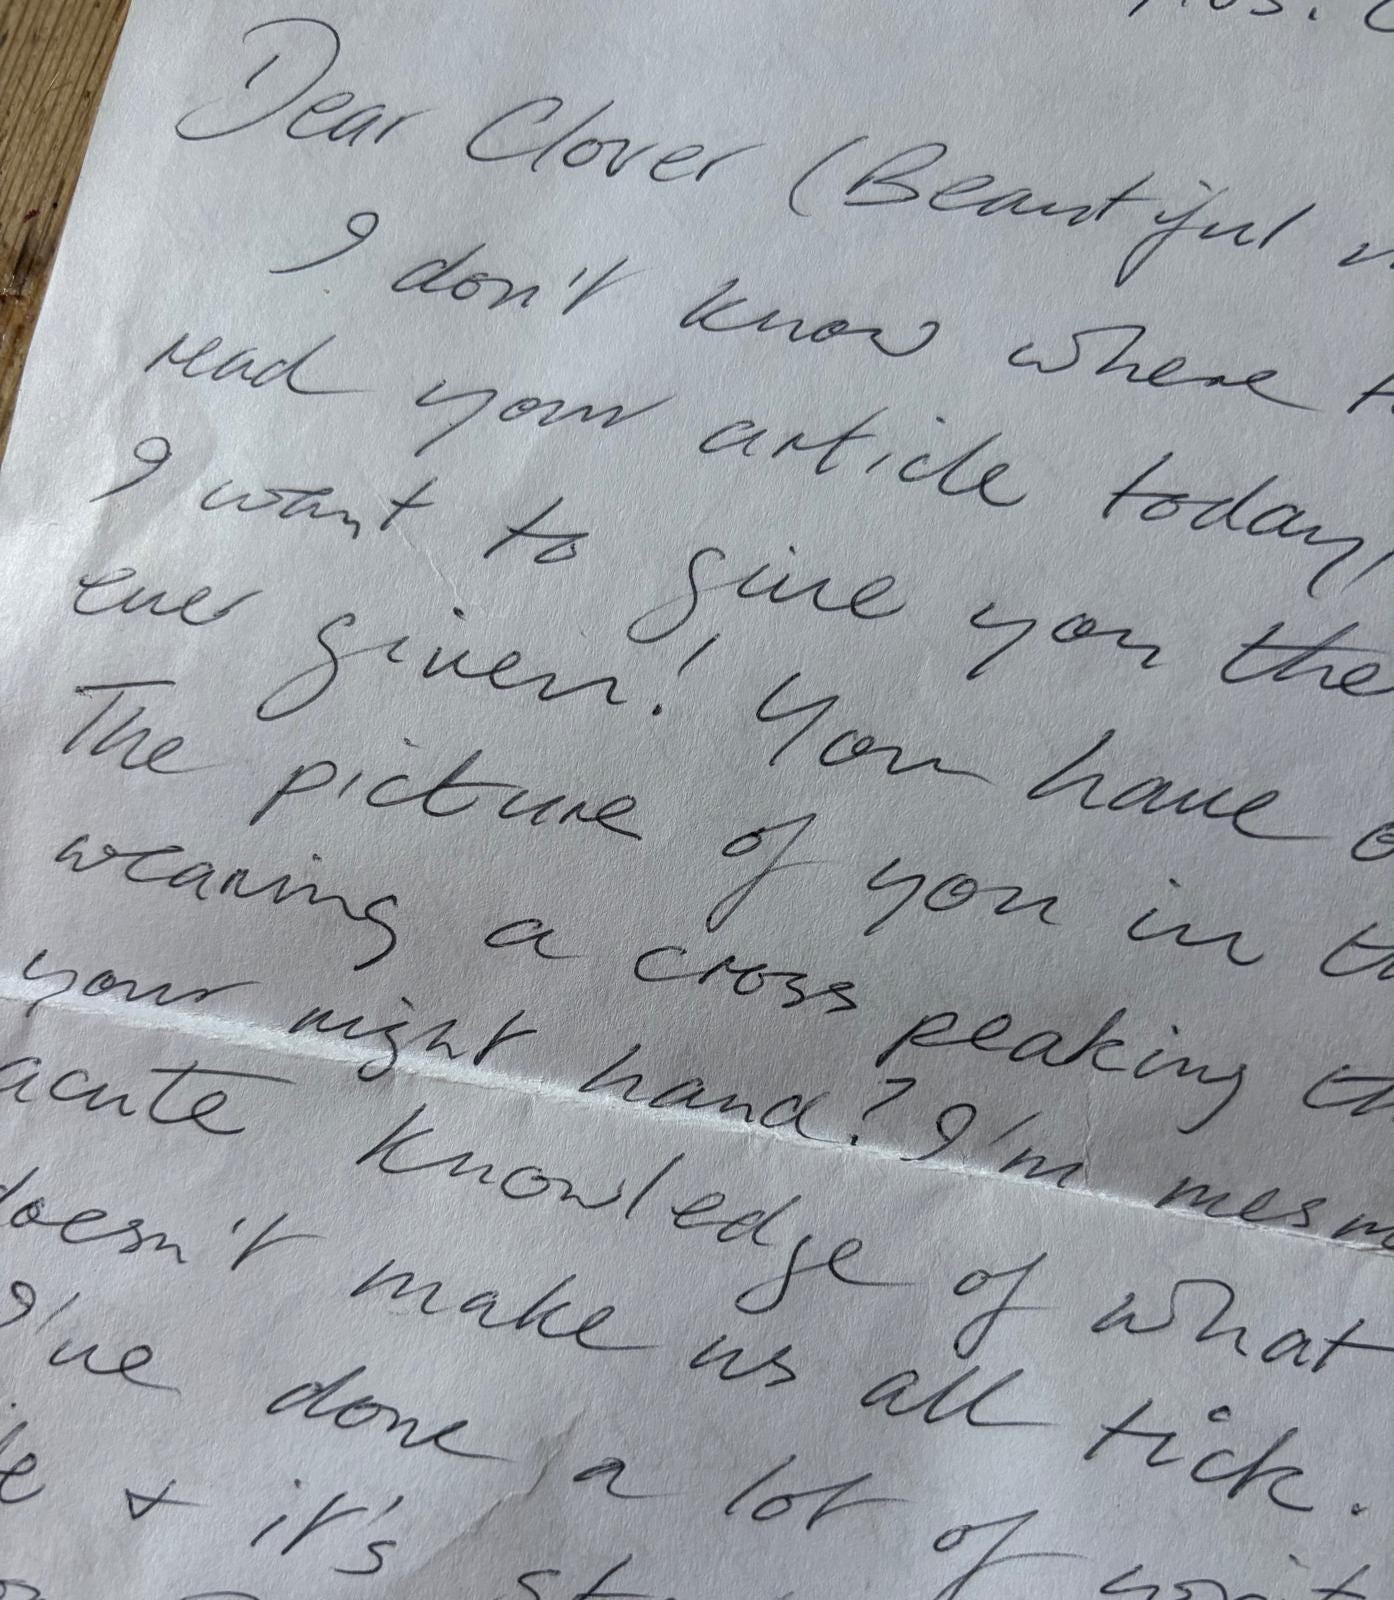 Dear Clover (Beautiful
I don't know where
read your article today,
I want to give you the
ever given! You have
The picture of you in
wearing a cross peaking
your right hand? I'm
acute knowledge of what
doesn't make us all tick.
I've done a lot of
& it's